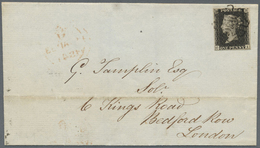 G. Tamplin Esq
Solr.
6 Kings Road
Bedford Row
London